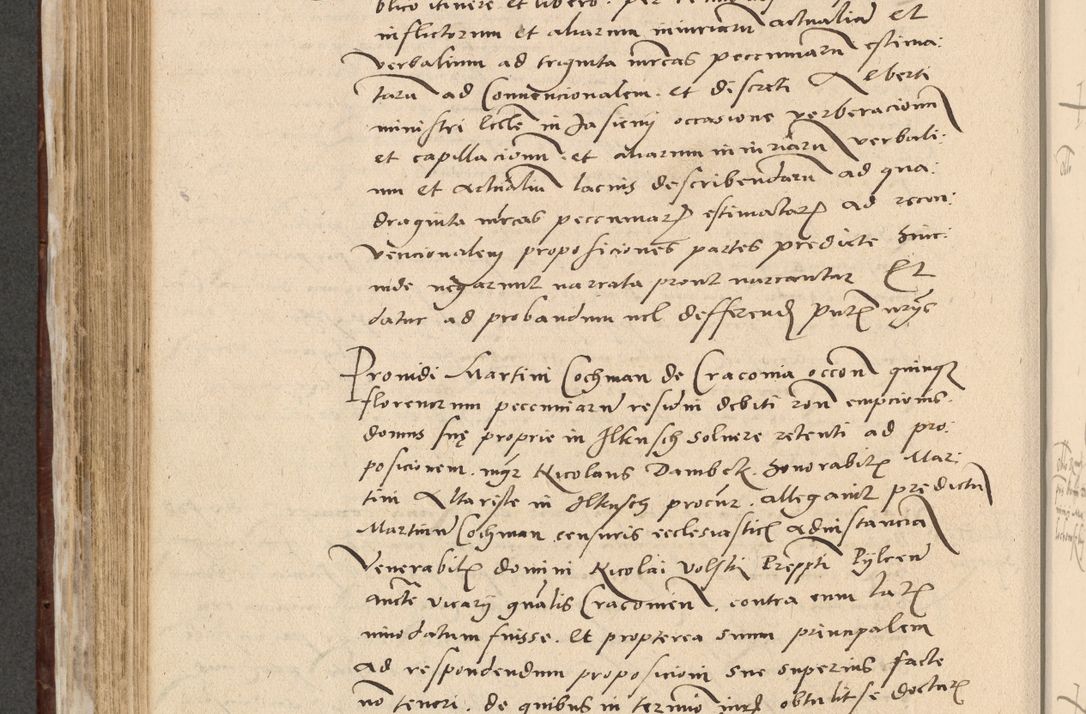 blico itinere et libero. per
inflictorum et aliarum iniuriarum actualium et
verbalium ad triginta mrcas pecuniarum estima:
tarum ad Convencionalem. et discreti Alberti
ministri Eccle in Jasieny occasione verberacionum
et capillacionum et aliarum iniuriarum verbali:
um et actualium lacius describendarum ad qua:
draginta mrcas pecuniarum estimatarum ad recon:
vencionalem proposiciones partes predicte hinc:
inde negarunt narrata prout narrantur Et
datur ad probandum vel defferend
Providi Martini Cochman de Cracovia occone quinque
florenorum pecuniarum residui debiti rone empcionis
domus sue proprie in Ilkusch solvere retenti ad pro:
posicionem. mgr Nicolaus Dambek. honorabilis Mar:
tini Altariste in Ilkusch procur. allegavit predictum
Martinum Cochman censuris ecclesiasticis ad instanciam
Venerabilis domini Nicolai Volski Preppti Pylcen
ancte vicarii gnalis Cracovien. contra eum latis
innodatum fuisse. Et propterea suum principalem
ad respondendum proposicioni sue superius facte
no teneri. de quibus in termino obtulit se docturum